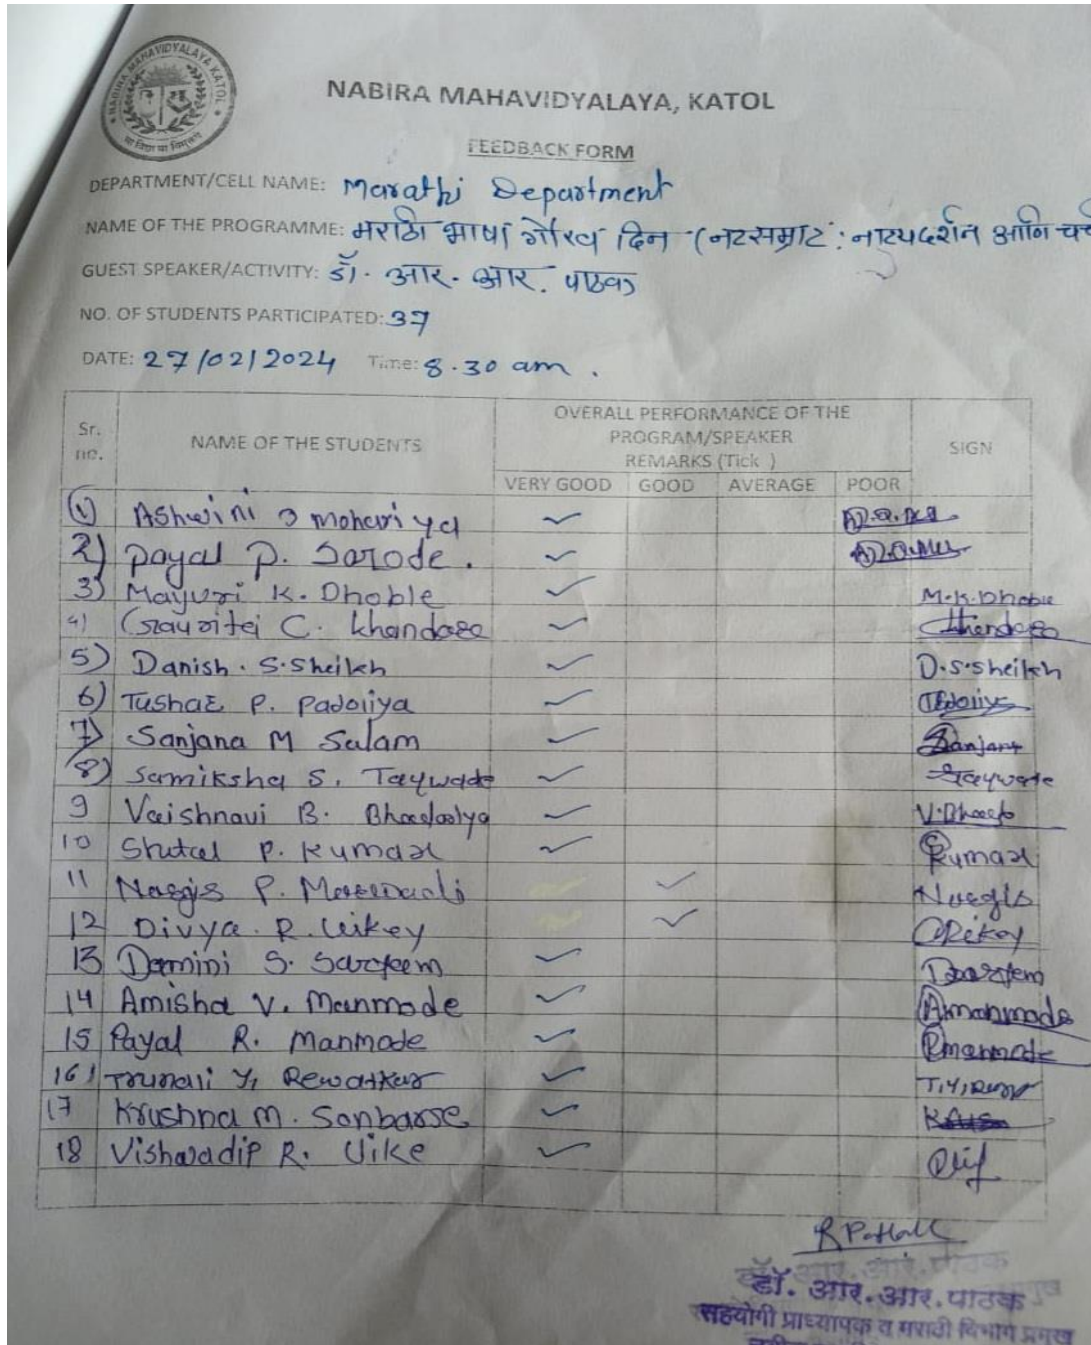 NABIRA MAHAVIDYALAYA KATOL
सा विद्या या विमुक्तये
NABIRA MAHAVIDYALAYA, KATOL
FEEDBACK FORM
DEPARTMENT/CELL NAME: Marathi Department
NAME OF THE PROGRAMME: मराठी भाषा गौरव दिन (नटसम्राट : नाट्यदर्शन आणि
GUEST SPEAKER/ACTIVITY: डॉ. आर. आर. पाठक
NO. OF STUDENTS PARTICIPATED: 37
DATE: 27/02/2024 Time: 8.30 am.
Sr. no. NAME OF THE STUDENTS OVERALL PERFORMANCE OF THE PROGRAM/SPEAKER REMARKS (Tick ) SIGN
VERY GOOD GOOD AVERAGE POOR
1) Ashwini J Mohariya ✓
2) Payal P. Sarode. ✓
3) Mayuri K. Dhoble ✓ M.K.Dhoble
4) Gauritai C. Khandase ✓
5) Danish. S. Sheikh ✓ D.S.Sheikh
6) Tushar P. ✓
7) Sanjana M Salam ✓ Sanjana
8) Samiksha S. Taywade ✓ Taywade
9 Vaishnavi B. ✓
10 P. Kumar ✓ Kumar
11 Nargis P. ✓ Nargis
12 Divya. R. Uikey ✓
13 Damini S. ✓
14 Amisha V. Manmode ✓ Amanmode
15 Payal R. Manmode ✓ Pmanmode
16) Trunali Y. Rewatkar ✓
17 Krushna M. Sonbarse ✓
18 Vishwadip R. Uike ✓
R Pathak
डॉ. आर. आर. पाठक
सहयोगी प्राध्यापक व मराठी विभाग प्रमुख